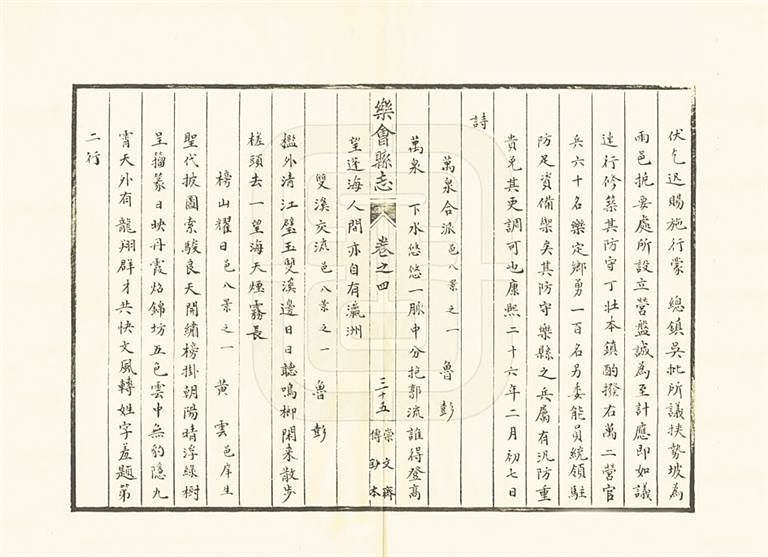 伏乞迅賜施行蒙　總鎮吳批所議挾勢坡為
兩邑扼要處所設立營盤誠為至計應即如議
速行修築其防守丁壯本鎮酌撥右萬二營官
兵六十名樂定鄉勇一百名另委能員統領駐
防足資備禦矣其防守樂縣之兵屬有汛防重
責免其更調可也康熙二十六年二月初七日
詩
萬泉合派 邑八景之一　魯彭
萬泉　下水悠悠一脉中分抱郭流誰得登高
樂會縣志　卷之四　三十五　崇文齋傳鈔本
望蓬海人間亦自有瀛洲
雙溪交流 邑八景之一　魯彭
檻外清江璧玉雙溪邊日日聽鳴榔閑来散步
槎頭去一望海天煙霧長
榜山耀日 邑八景之一　黃雲 邑庠生
聖代披圖索駿良天開繡榜掛朝陽晴浮綠樹
呈籀篆日映丹霞焰錦坊五色雲中無豹隱九
霄天外有龍翔群才共快文風轉姓字羞題第
二行